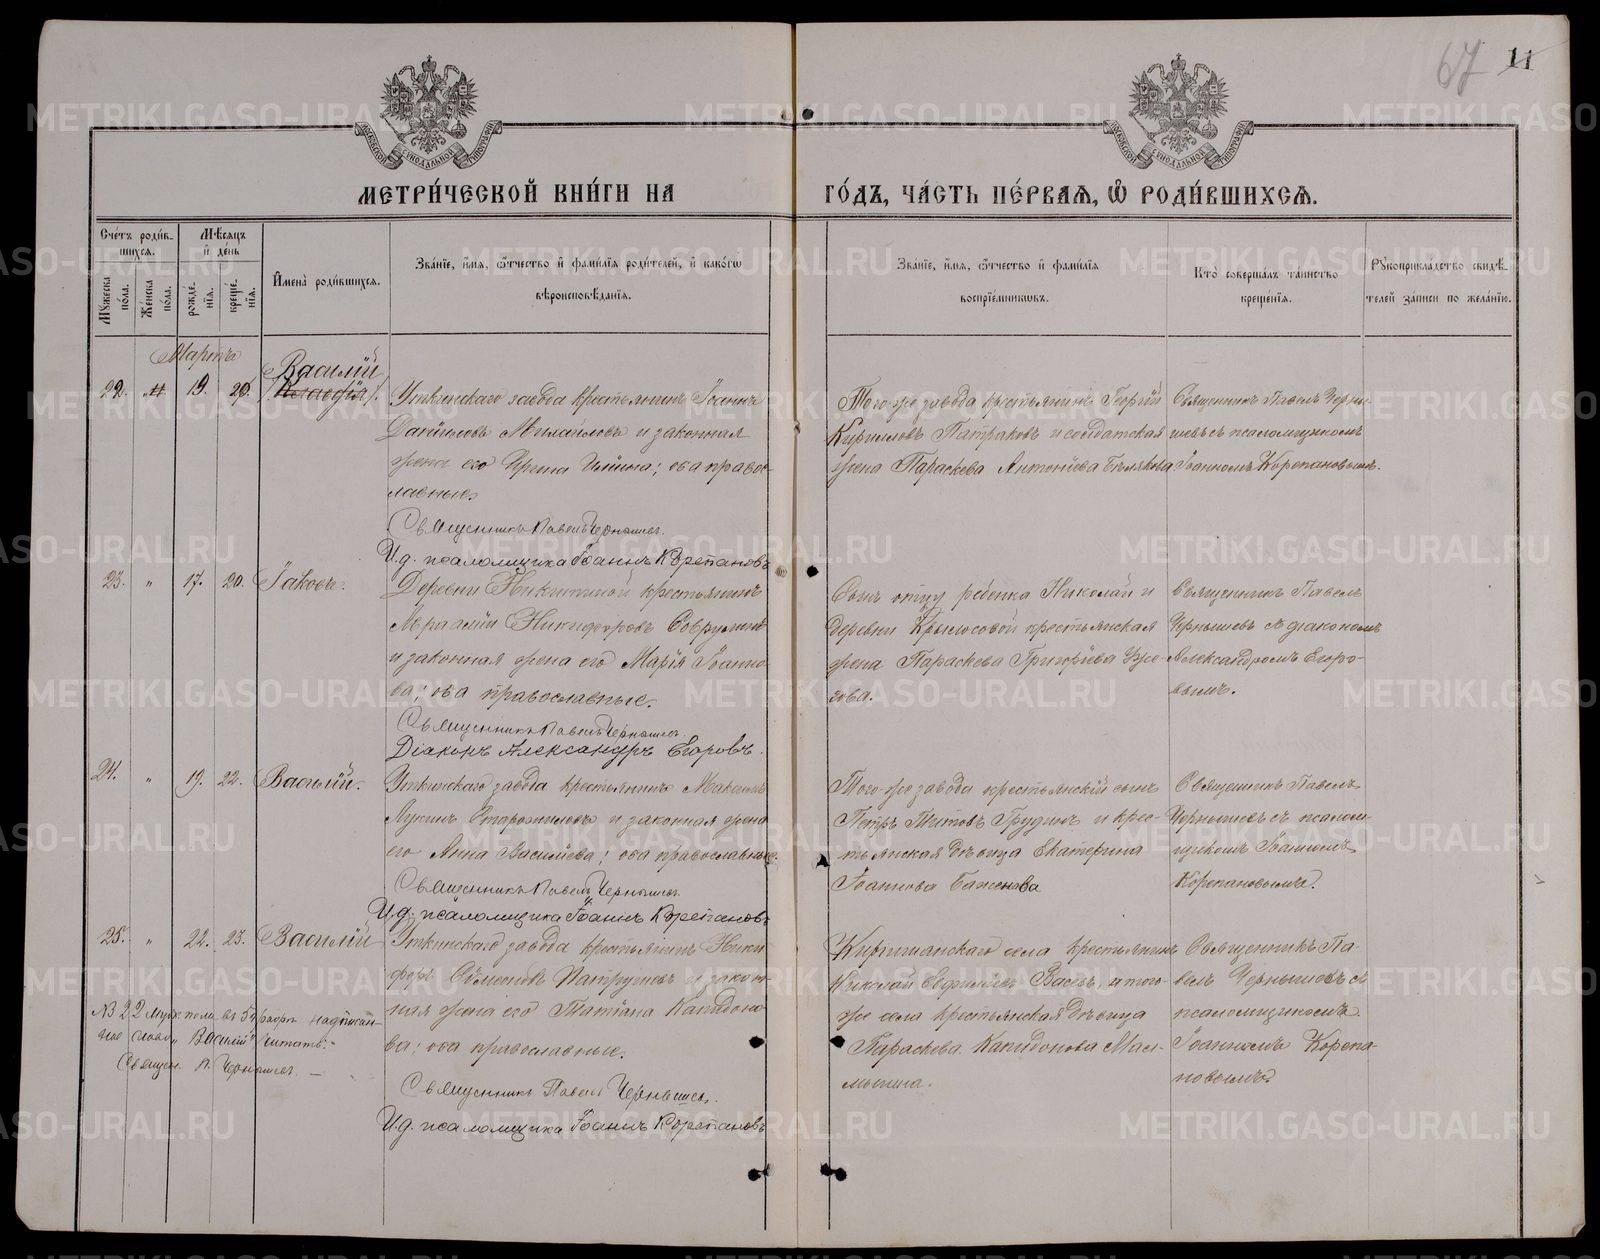 67 11
МОСКОВСКОЙ СѴНОДАЛЬНОЙ ТИПОГРАФІИ
МОСКОВСКОЙ СѴНОДАЛЬНОЙ ТИПОГРАФІИ
МЕТРИ́ЧЕСКОЙ КНИ́ГИ НА
ГО́ДЪ, ЧА́СТЬ ПЕ́РВАѦ, Ѽ РОДИ́ВШИХСѦ.
Сче́тъ роди́в-
шихся.
Му́жеска по́ла.
Же́нска по́ла.
Мѣ́сяцъ
и де́нь
рожде́-нія.
креще́-нія.
Имена̀ роди́вшихся.
Зва́ніе, и́мя, ѻ́тчество и фами́лія роди́телей, и како́гѡ
вѣроисповѣ́данія.
Зва́ніе, и́мя, ѻ́тчество и фами́лія
воспріе́мникѡвъ.
Кто̀ соверша́лъ та́инство
креще́нія.
Рукоприкла́дство свидѣ́-
телей за́писи по жела́нію.
Мартъ
Василій
22. „ 19. 20. Уткинскаго завода крестьянинъ Іоаннъ
Даниловъ Михайловъ и законная
жена его Ирина Ильина; оба право-
славные.
Священникъ Павелъ Чернышевъ.
И.д. псаломщика Іоаннъ Корепановъ
Того-же завода крестьянинъ Георгій
Кирилловъ Патраковъ и солдатская
жена Параскева Антоніева Бѣлякова
Священникъ Павелъ Черны-
шевъ съ псаломщикомъ
Іоанномъ Корепановымъ.
23. „ 17. 20. Іаковъ. Деревни Никитиной крестьянинъ
Никифоровъ
и законная жена его Марія Іоанно-
ва; оба православные.
Священникъ Павелъ Чернышевъ.
Діаконъ Александръ Егоровъ.
Сынъ отцу ребенка Николай и
деревни Крылосовой крестьянская
жена Параскева Григоріева
Священникъ Павелъ
Чернышевъ съ діакономъ
Александромъ Егоро-
вымъ.
24. „ 19. 22. Василій. Уткинскаго завода крестьянинъ Максимъ
Лукинъ Старожиловъ и законная жена
его Анна Васильева; оба православные.
Священникъ Павелъ Чернышевъ
И.д. псаломщика Іоаннъ Корепановъ
Того-же завода крестьянскій сынъ
Петръ Титовъ Грудинъ и крес-
тьянская дѣвица Екатерина
Іоаннова Баженова
Священникъ Павелъ
Чернышевъ съ псалом-
щикомъ Іоанномъ
Корепановымъ.
25. „ 22. 23. Василій Уткинскаго завода крестьянинъ Ники-
форъ Симеоновъ Патрушевъ и закон-
ная жена его Татіана Капидоно-
ва; оба православные.
Священникъ Павелъ Чернышевъ.
И.д. псаломщика Іоаннъ Корепановъ
Киргишанскаго села крестьянинъ
Николай Евфиміевъ Васевъ, и того-
же села крестьянская дѣвица
Параскева Капидонова Мал-
Священникъ Па-
велъ Чернышевъ съ
псаломщикомъ
Іоанномъ Корепа-
новымъ.
№ 22 муж. пола въ 5й графѣ надписан-
ное слово „Василій“ читать:-
Священ. П. Чернышевъ. —
METRIKI.GASO-URAL.RU